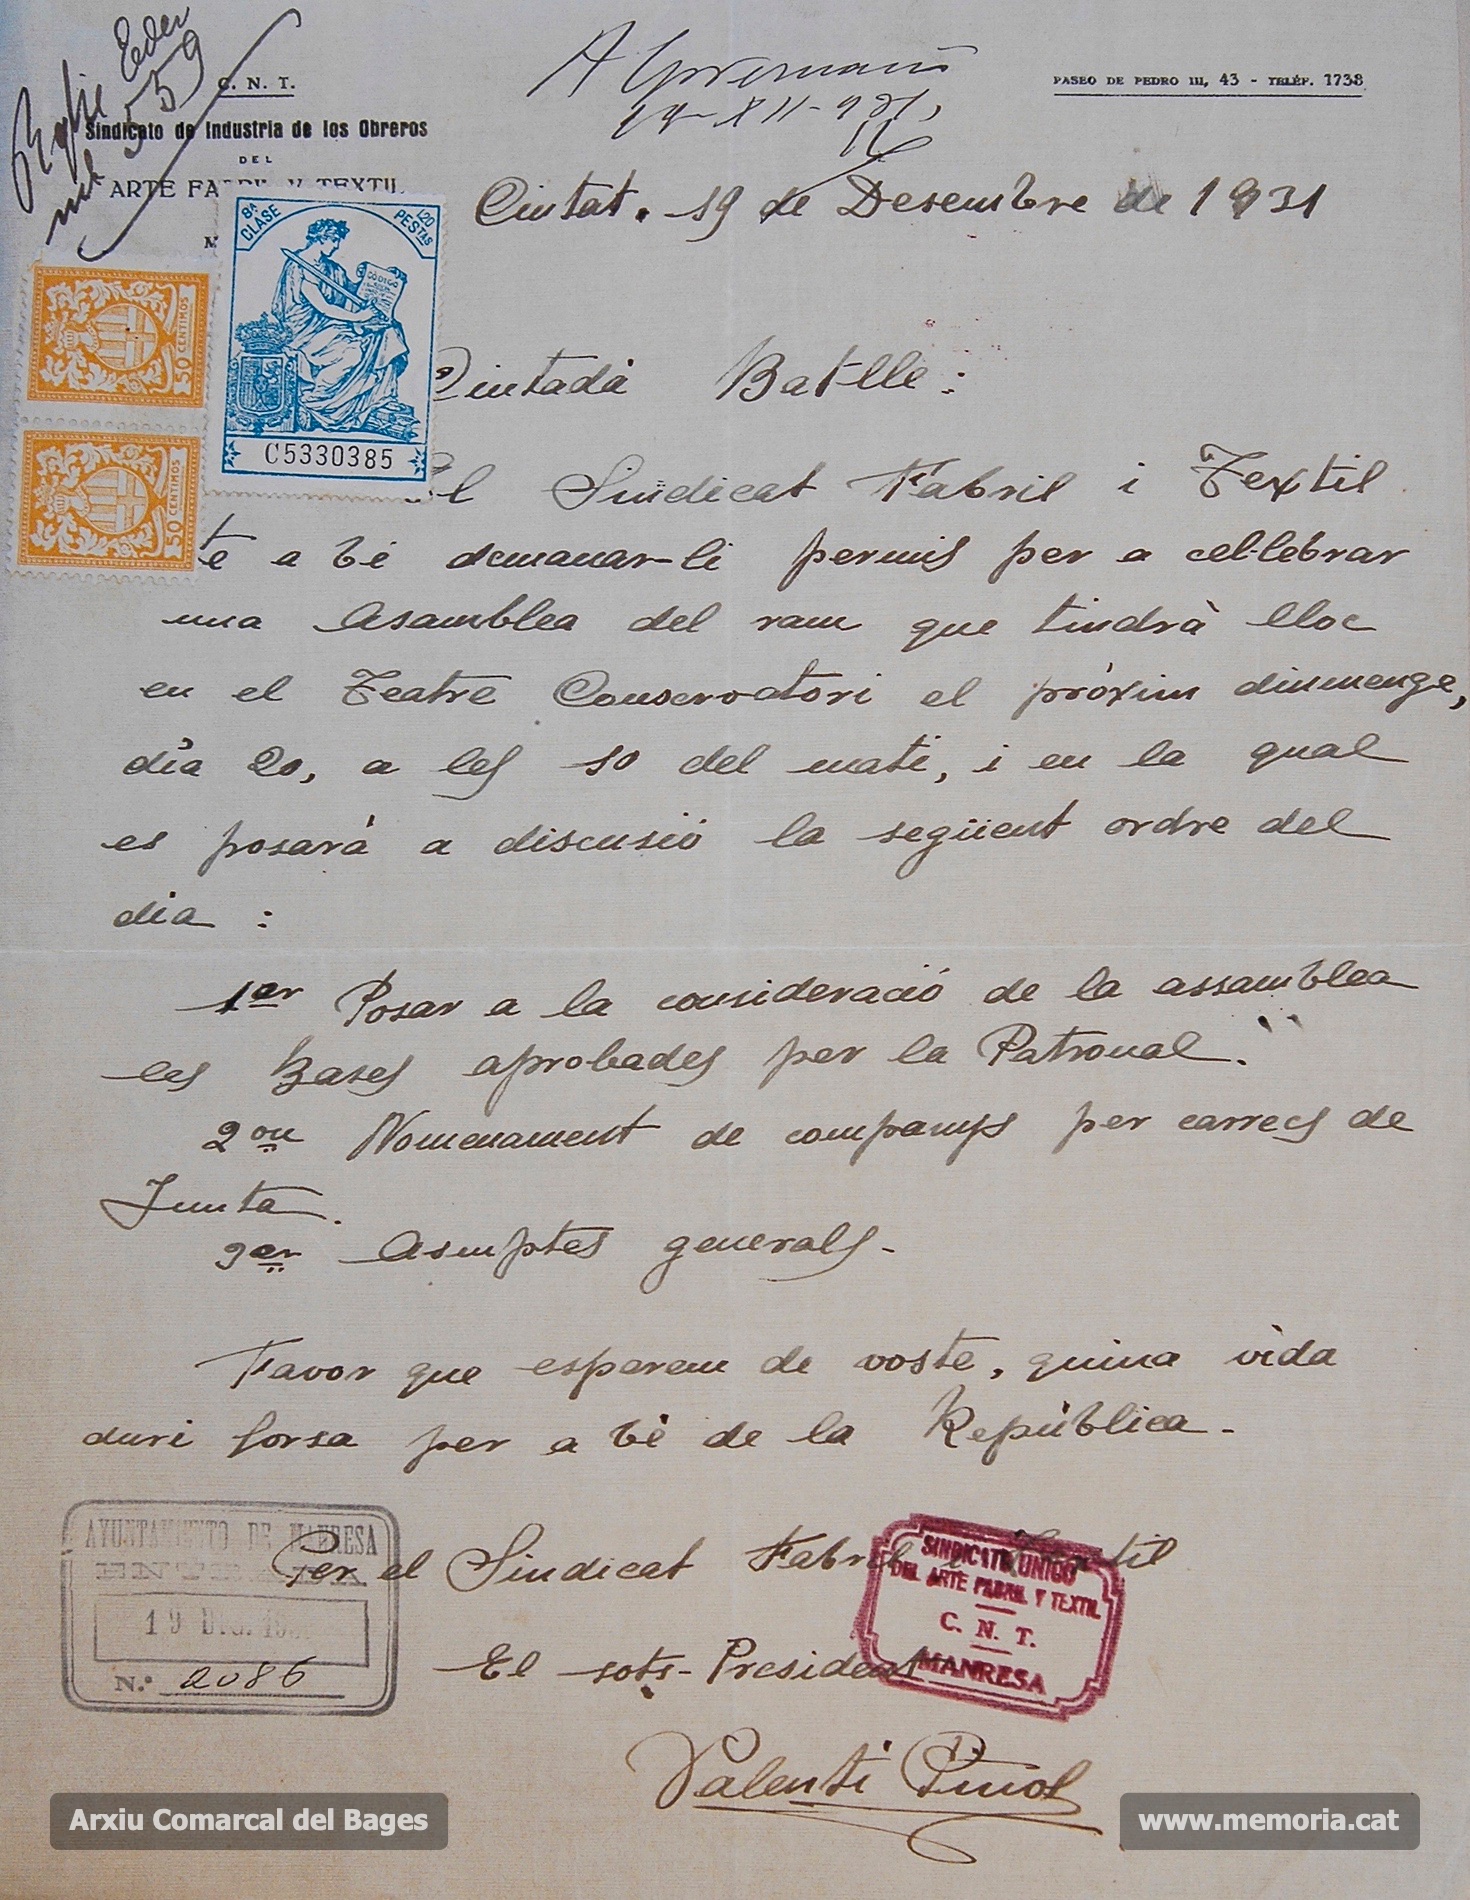 C. N. T.
Sindicato de Industria de los Obreros
DEL
ARTE FABRIL Y TEXTIL
PASEO DE PEDRO III, 43 - TELÉF. 1738
A Governació
19-XII-931
559
Ciutat. 19 de Desembre de 1931
8ª CLASE
1,20 PESTAS
CÓDIGO
C5330385
50 CENTIMOS
50 CENTIMOS
Ciutadà Batlle:
El Sindicat Fabril i Textil
te a bé demanar-li permis per a cel·lebrar
una Asamblea del ram que tindrà lloc
en el Teatre Conservatori el próxim diumenge,
dia 20, a les 10 del mati, i en la qual
es posarà a discusió la següent ordre del
dia :
1er Posar a la consideració de la assamblea
les Bases aprobades per la Patronal.
2on Nomenament de companys per carrecs de
Junta.
3er Asumptes generals.
Favor que esperem de voste, quina vida
duri forsa per a bé de la República.
Per el Sindicat Fabril i Textil
El sots-President
Valenti Pinol
AYUNTAMIENTO DE MANRESA
ENTRADA
19 DIC. 193
N.º 2086
SINDICATO UNICO
DEL ARTE FABRIL Y TEXTIL
C. N. T.
MANRESA
Arxiu Comarcal del Bages
www.memoria.cat